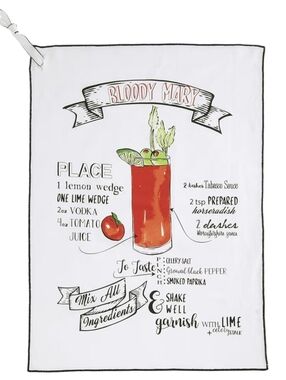 BLOODY MARY
PLACE
1 lemon wedge
ONE LIME WEDGE
2oz VODKA
4oz TOMATO
JUICE
2 dashes Tabasco Sauce
2 tsp PREPARED
horseradish
2 dashes
Worcestershire sauce
To Taste
PINCH
CELERY SALT
Ground black PEPPER
SMOKED PAPRIKA
Mix All
Ingredients
& SHAKE
WELL
garnish WITH LIME
+ celery STALK